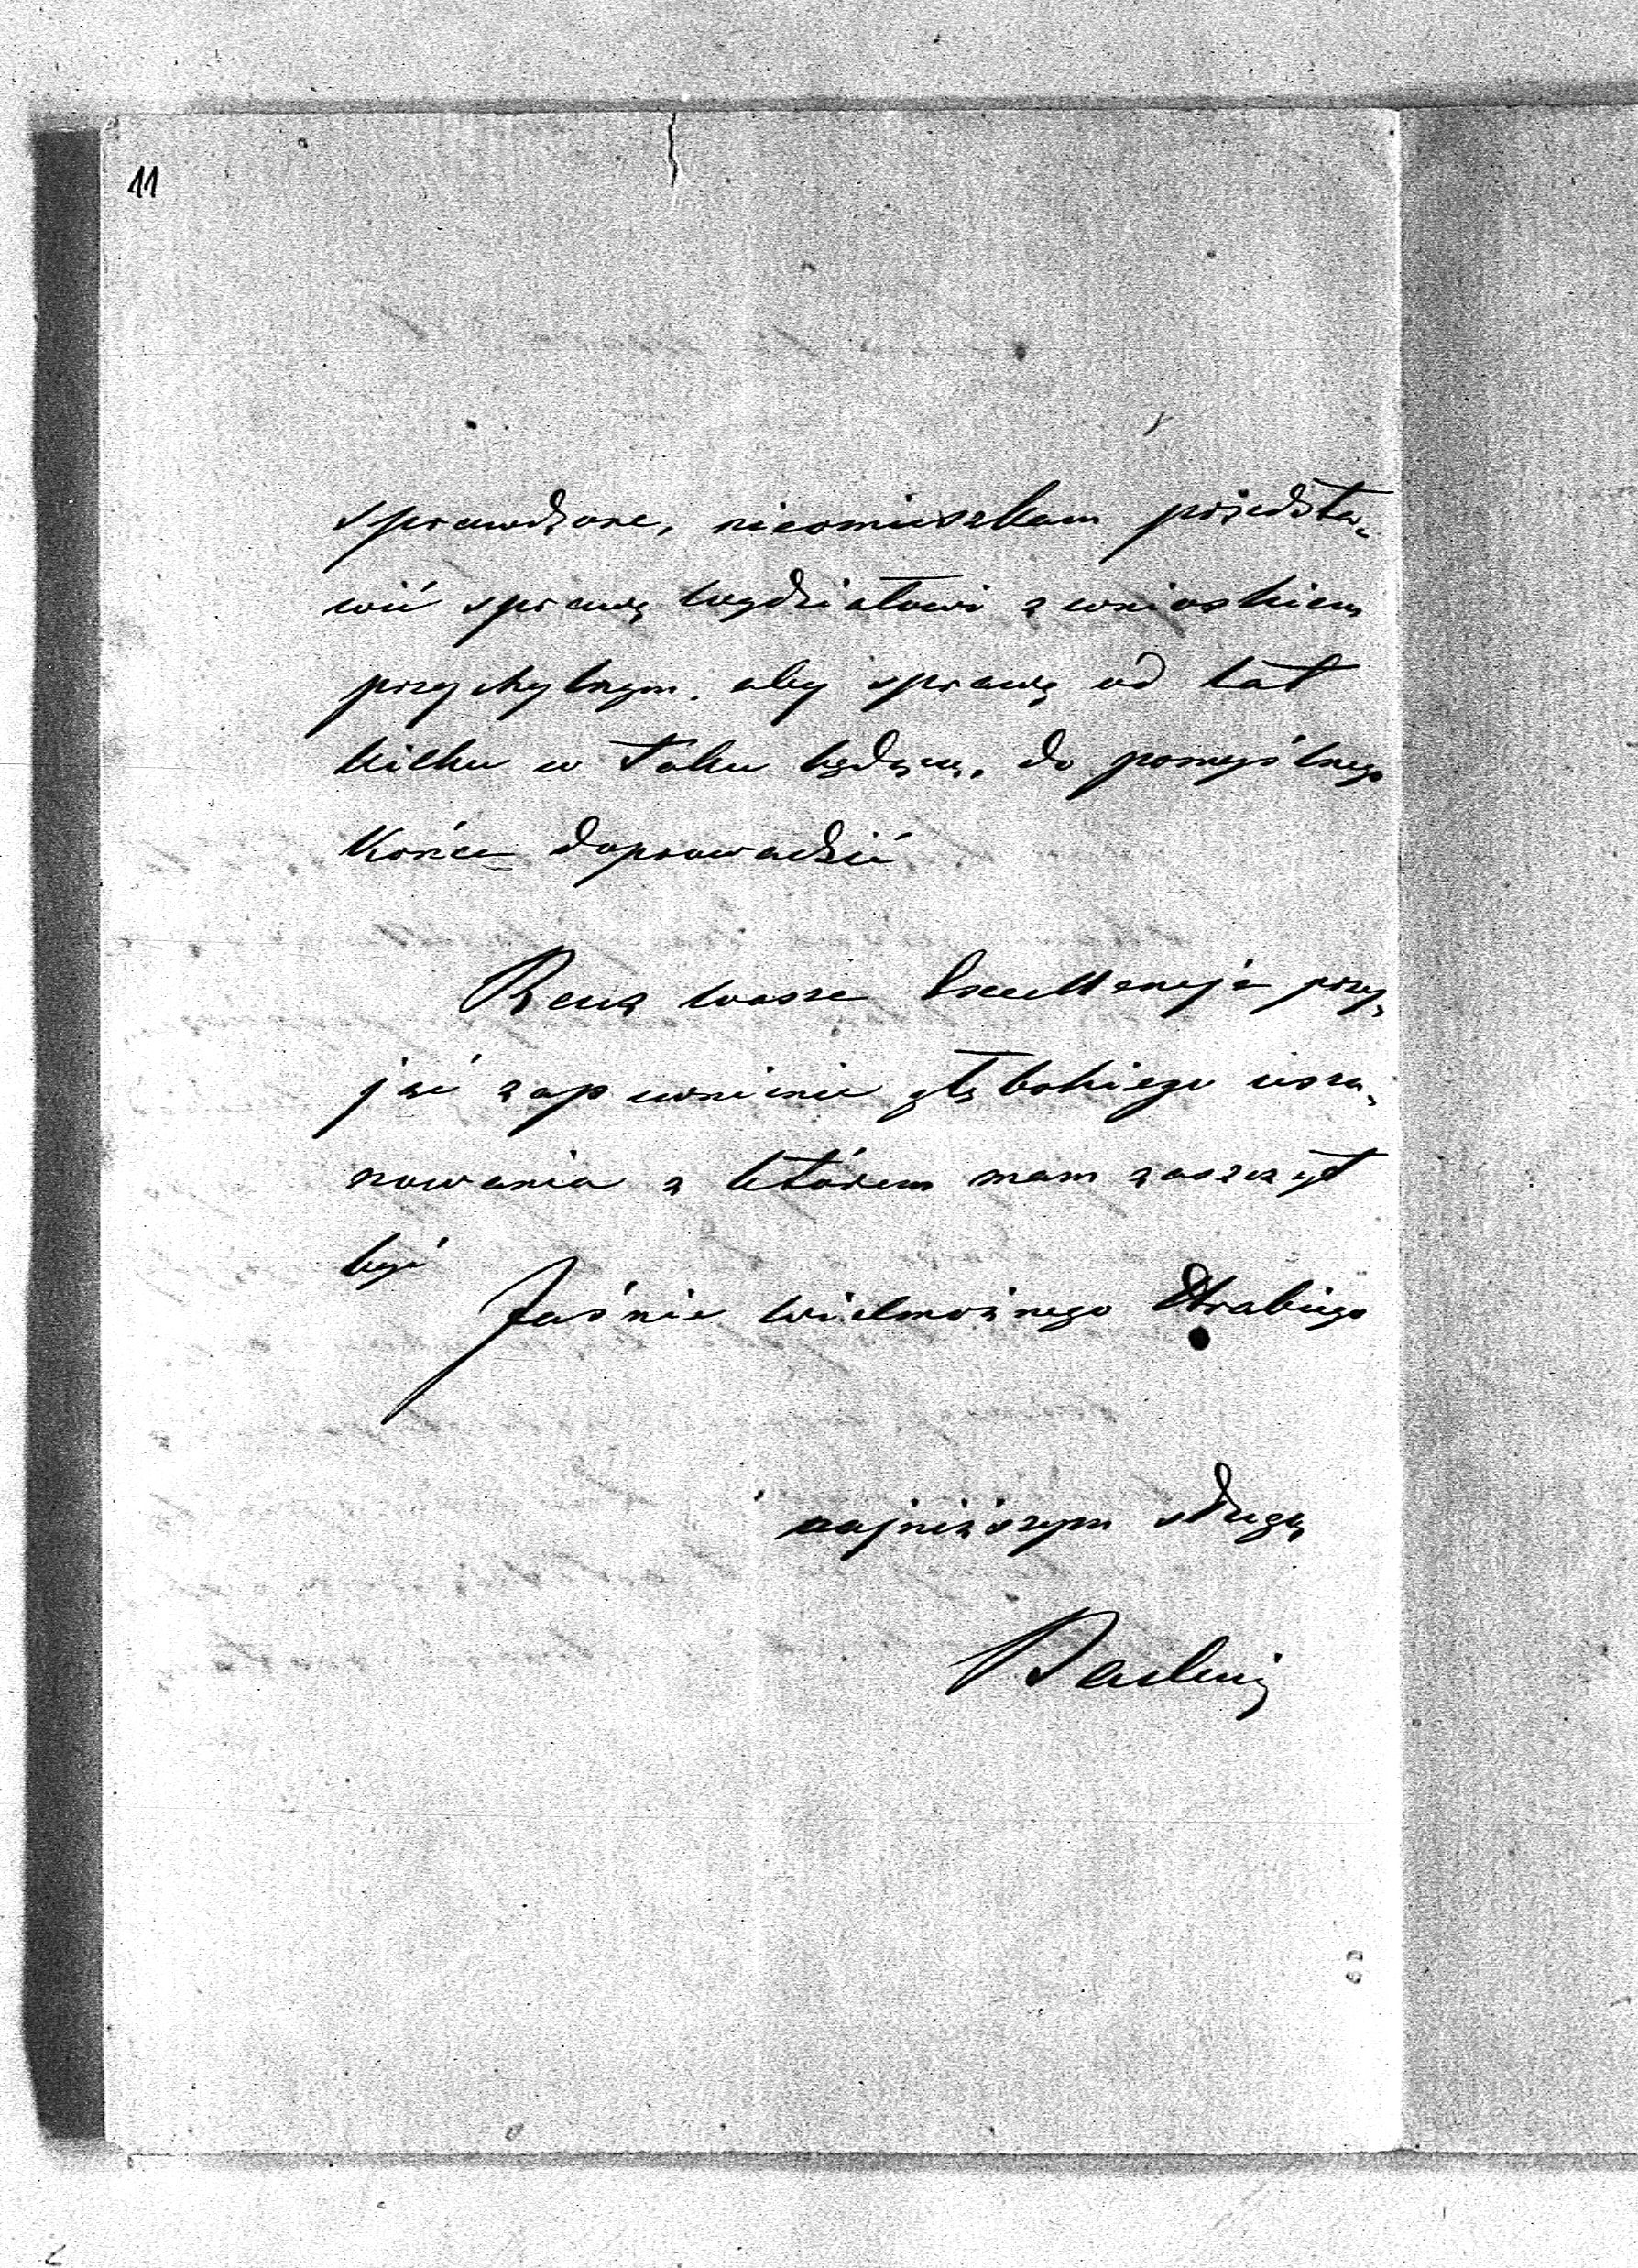 11
sprawdzone, nieomieszkam przedsta-
wić sprawę wydziałowi z wnioskiem
przychylnym. aby sprawę od lat
kilku w toku będącą, do pomyślnego
końca doprowadzić
Racz wasza Excellencja przy-
jąć zapewnienie głębokiego usza-
nowania z którem mam zaszczyt
być
Jaśnie wielmożnego Hrabiego
najniższym sługą
Badeni